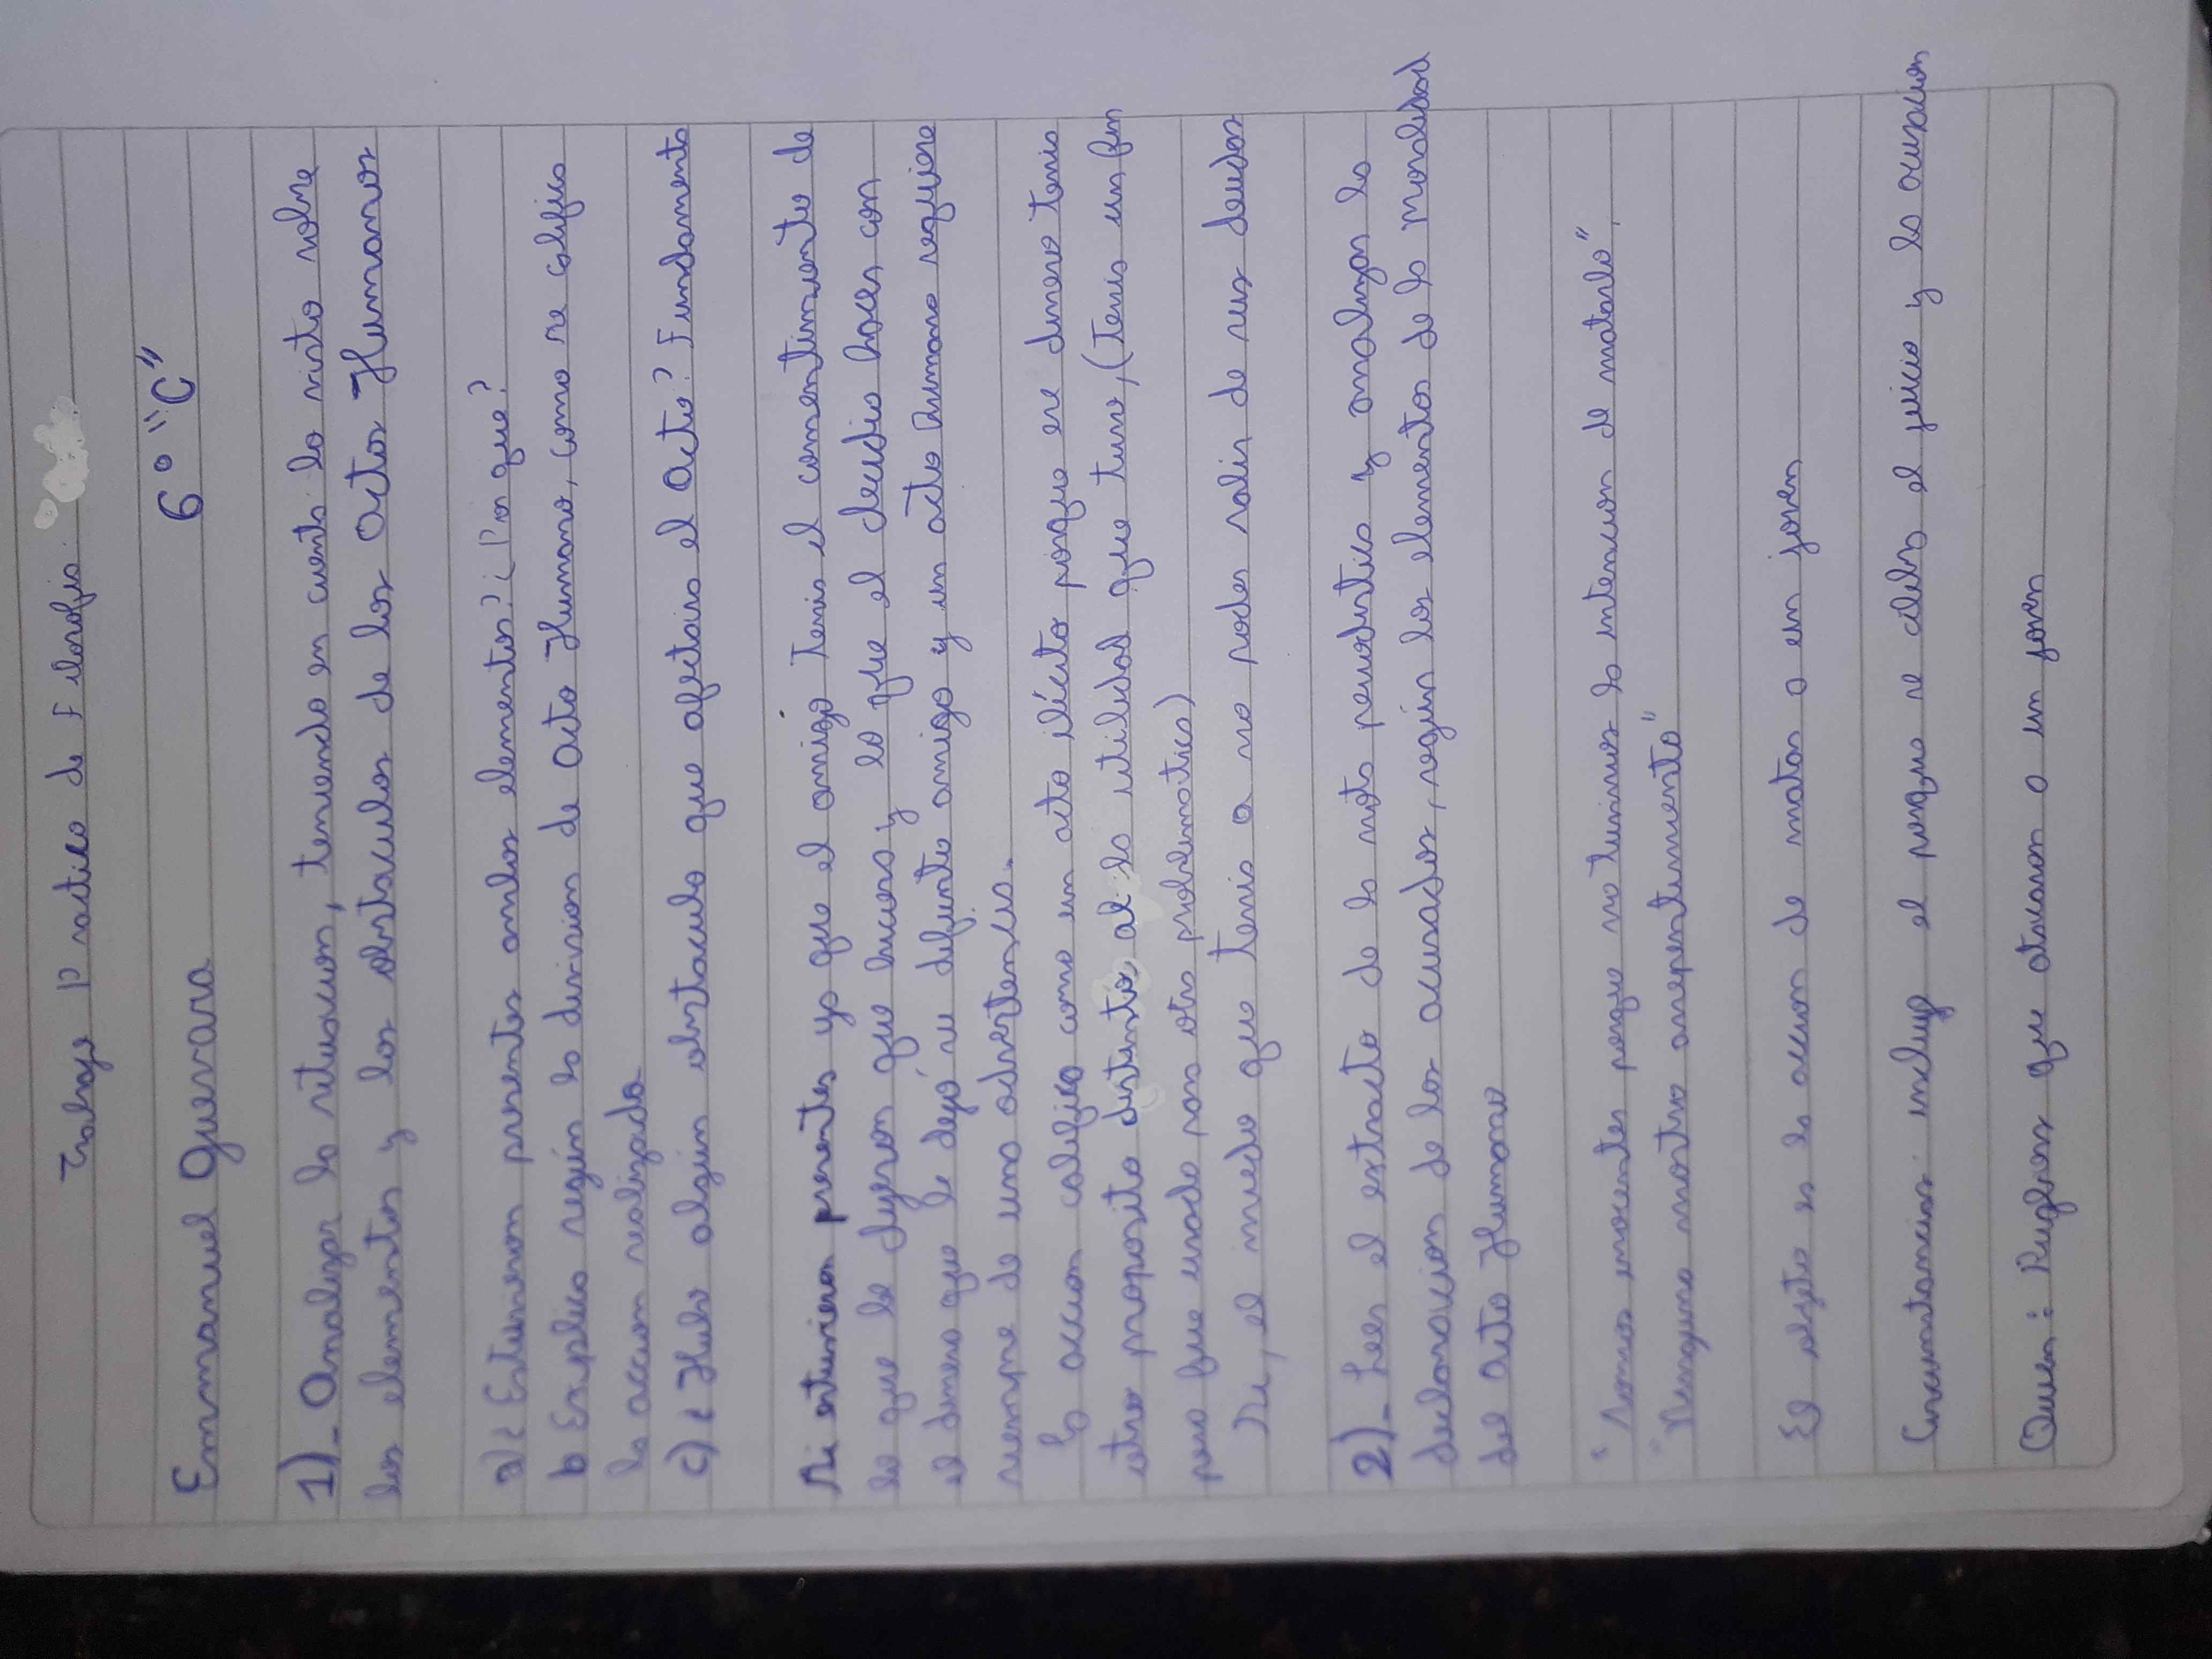 Trabajo Practico de Filosofia
Emmanuel Guevara 6° "C"
1)- Analizar la situacion, teniendo en cuenta lo visto sobre
los elementos y los obstaculos de los Actos Humanos
a)¿ Estuvieron presentes ambos elementos? ¿Por que?
b Explica según la division de Acto Humano, como se califica
la accion realizada
c)¿ Hubo algun obstaculo que afectaro el Acto? Fundamenta
Si estuvieron presentes ya que el amigo Tenia el consentimiento de
lo que le dijeron que hiciera y lo que el decidio hacer con
el dinero que le dejó su difunto amigo y un acto humano requiere
siempre de una advertencia.
la accion califica como un acto ilícito porque ese dinero tenia
otro proposito distinto al la utilidad que tuvo, (Tenia un fin
pero fue usado para otra problematica)
Si, el miedo que tenia a no poder salir de sus deudas
2)- Leer el extracto de la nota periodistica y analizar la
declaracion de los acusados, según los elementos de la moralidad
del Acto Humano
"Somos inocentes porque no tuvimos la intencion de matarlo",
"Ninguno mostro arrepentimiento"
El objeto es la accion de matar a un joven
Circunstancias: incluye el porque se celebra el juicio y la acusacion
Quien: Rugbiers que atacaron a un joven